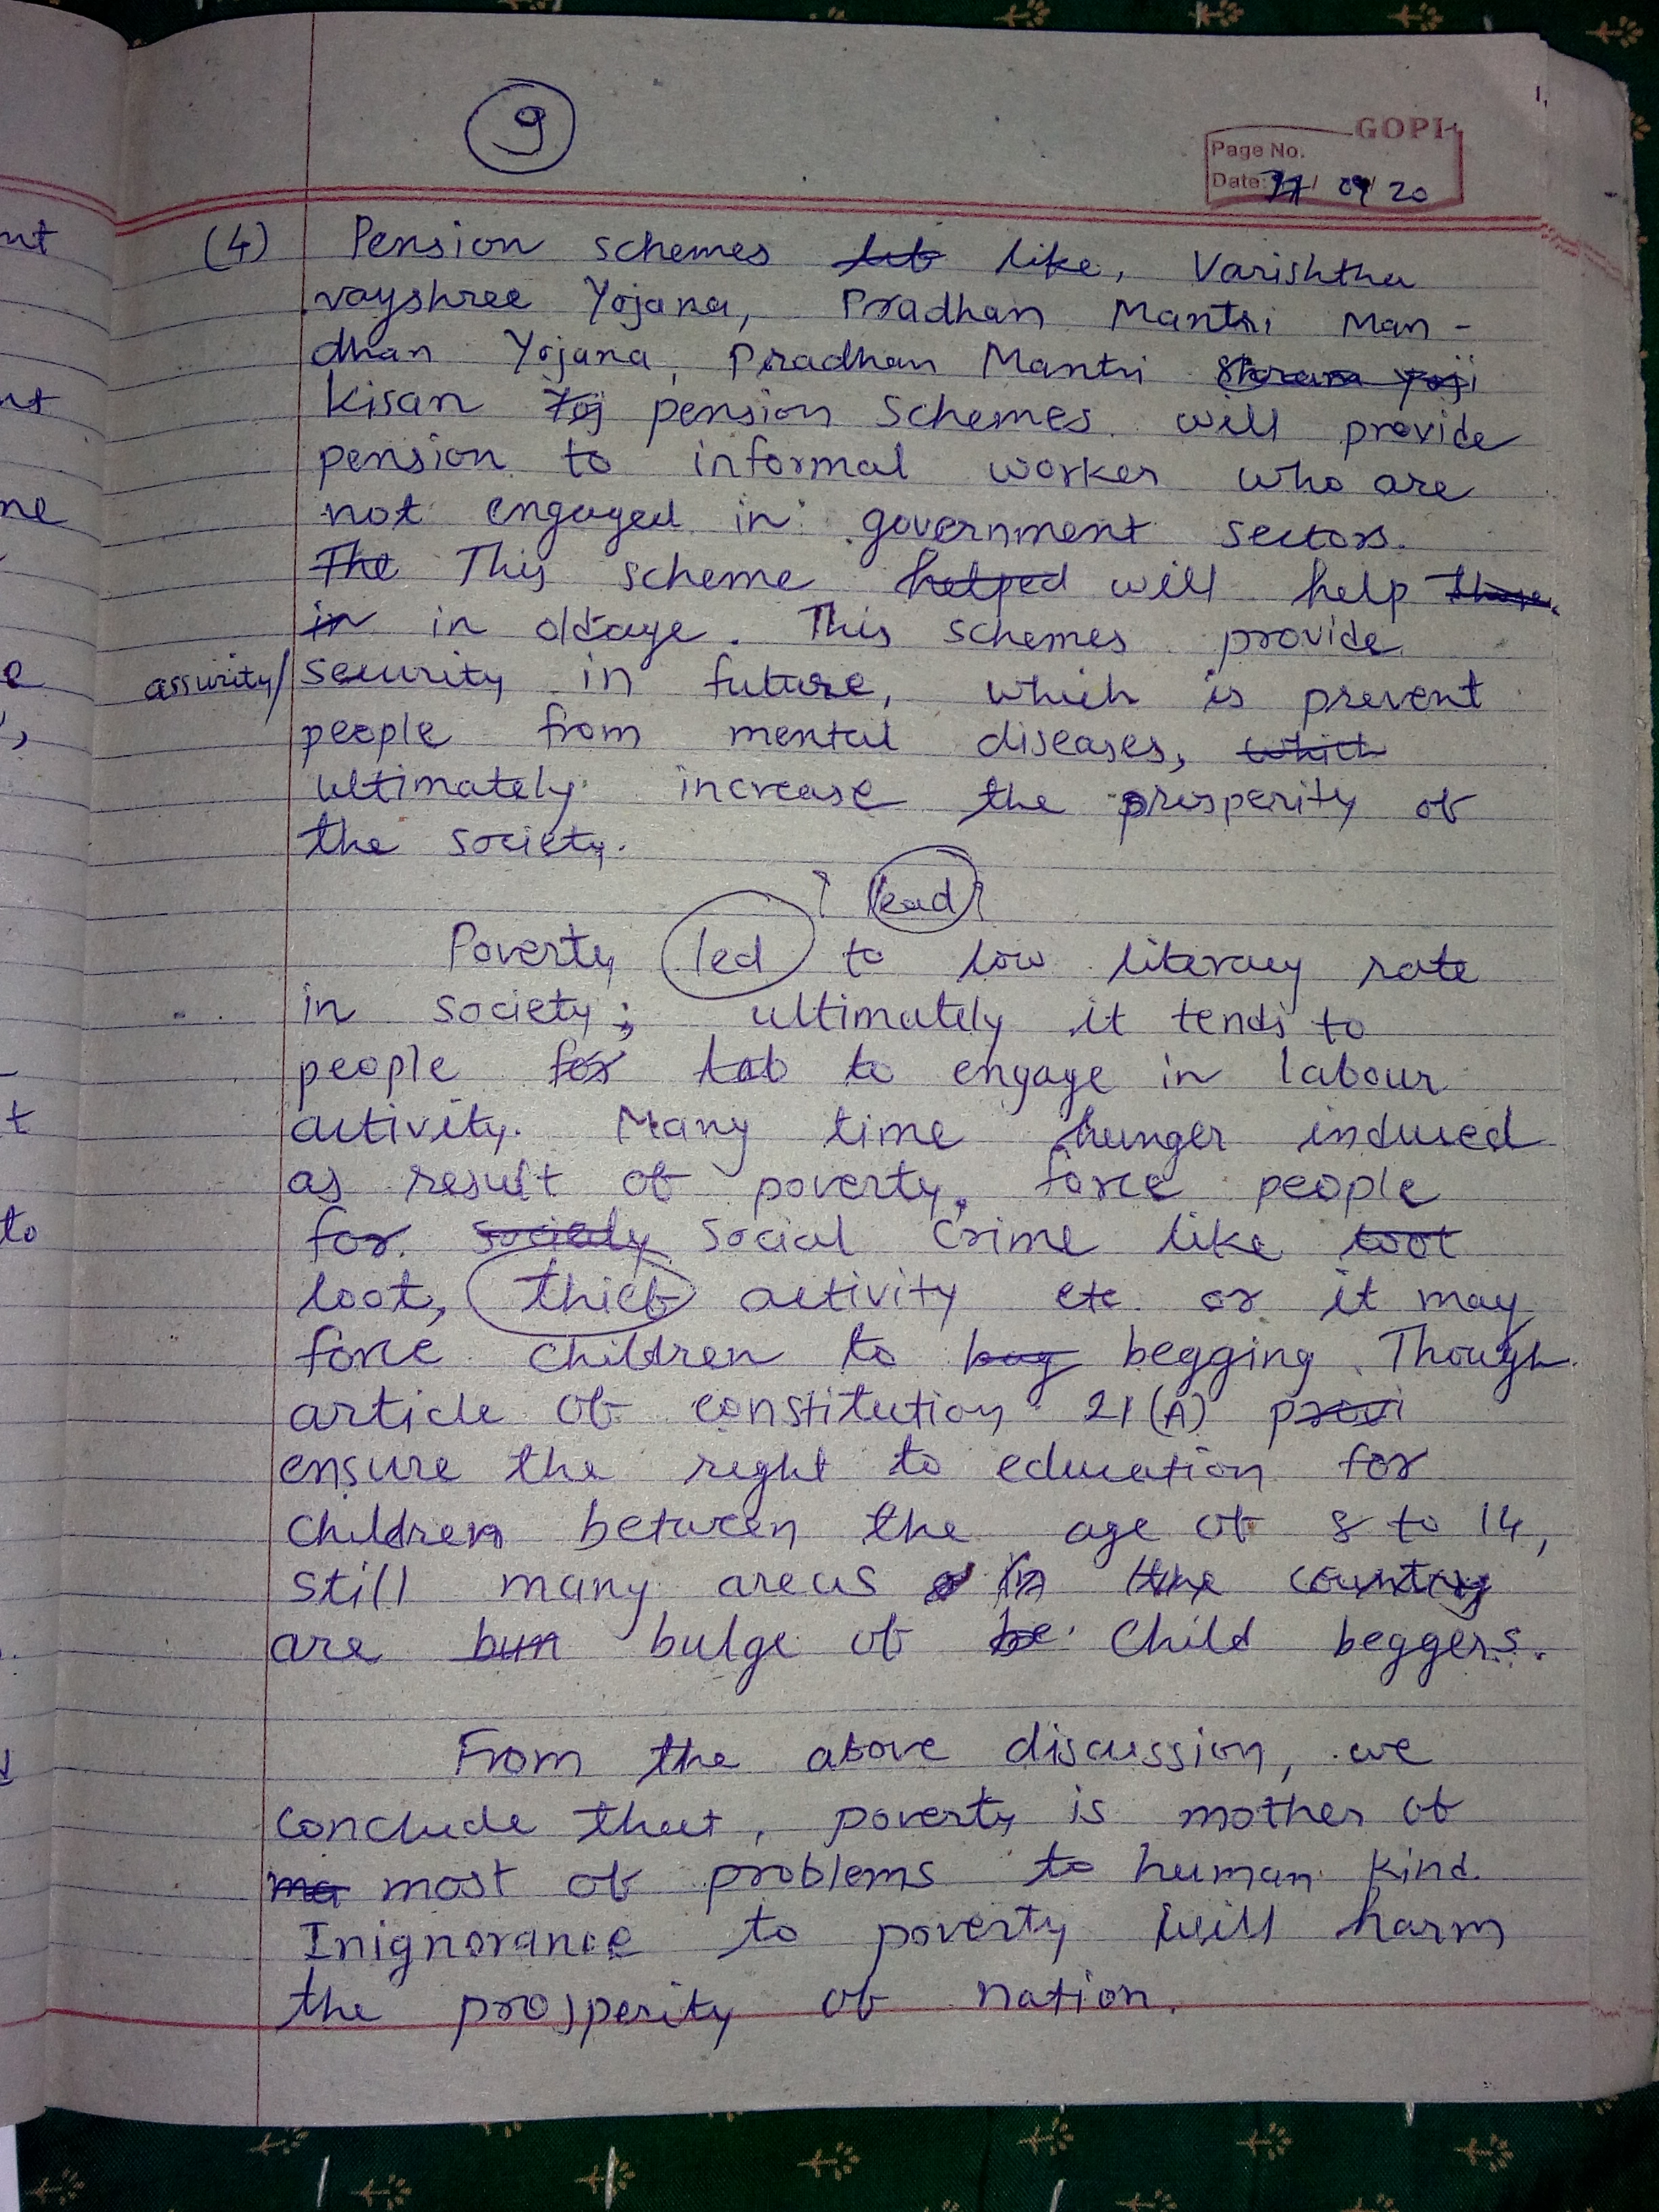 9
GOPI
Page No.
Date: 09/20
(4) Pension schemes like, Varishtha
vayshree Yojana, Pradhan Mantri Man-
dhan Yojana, Pradhan Mantri Shram yogi
Kisan Yoj pension schemes will provide
pension to informal worker who are
not engaged in government sectors.
The This scheme helped will help those
in in oldage. This schemes provide
assurity/ security in future, which is prevent
people from mental diseases, which
ultimately increase the prosperity of
the society.
? lead?
Poverty led to low literacy rate
in society; ultimately it tends to
people for to engage in labour
activity. Many time hunger induced
as result of poverty, force people
for society social crime like loot
loot, thief activity etc or it may
force children to beg begging. Though
article of constitution 21(A) provi
ensure the right to education for
children between the age of 8 to 14,
still many areas in the country
are bun bulge of be child beggers.
From the above discussion, we
conclude that, poverty is mother of
ma most of problems to human kind.
Inignorance to poverty will harm
the prosperity of nation.
nt
nt
ne
e
,
t
to